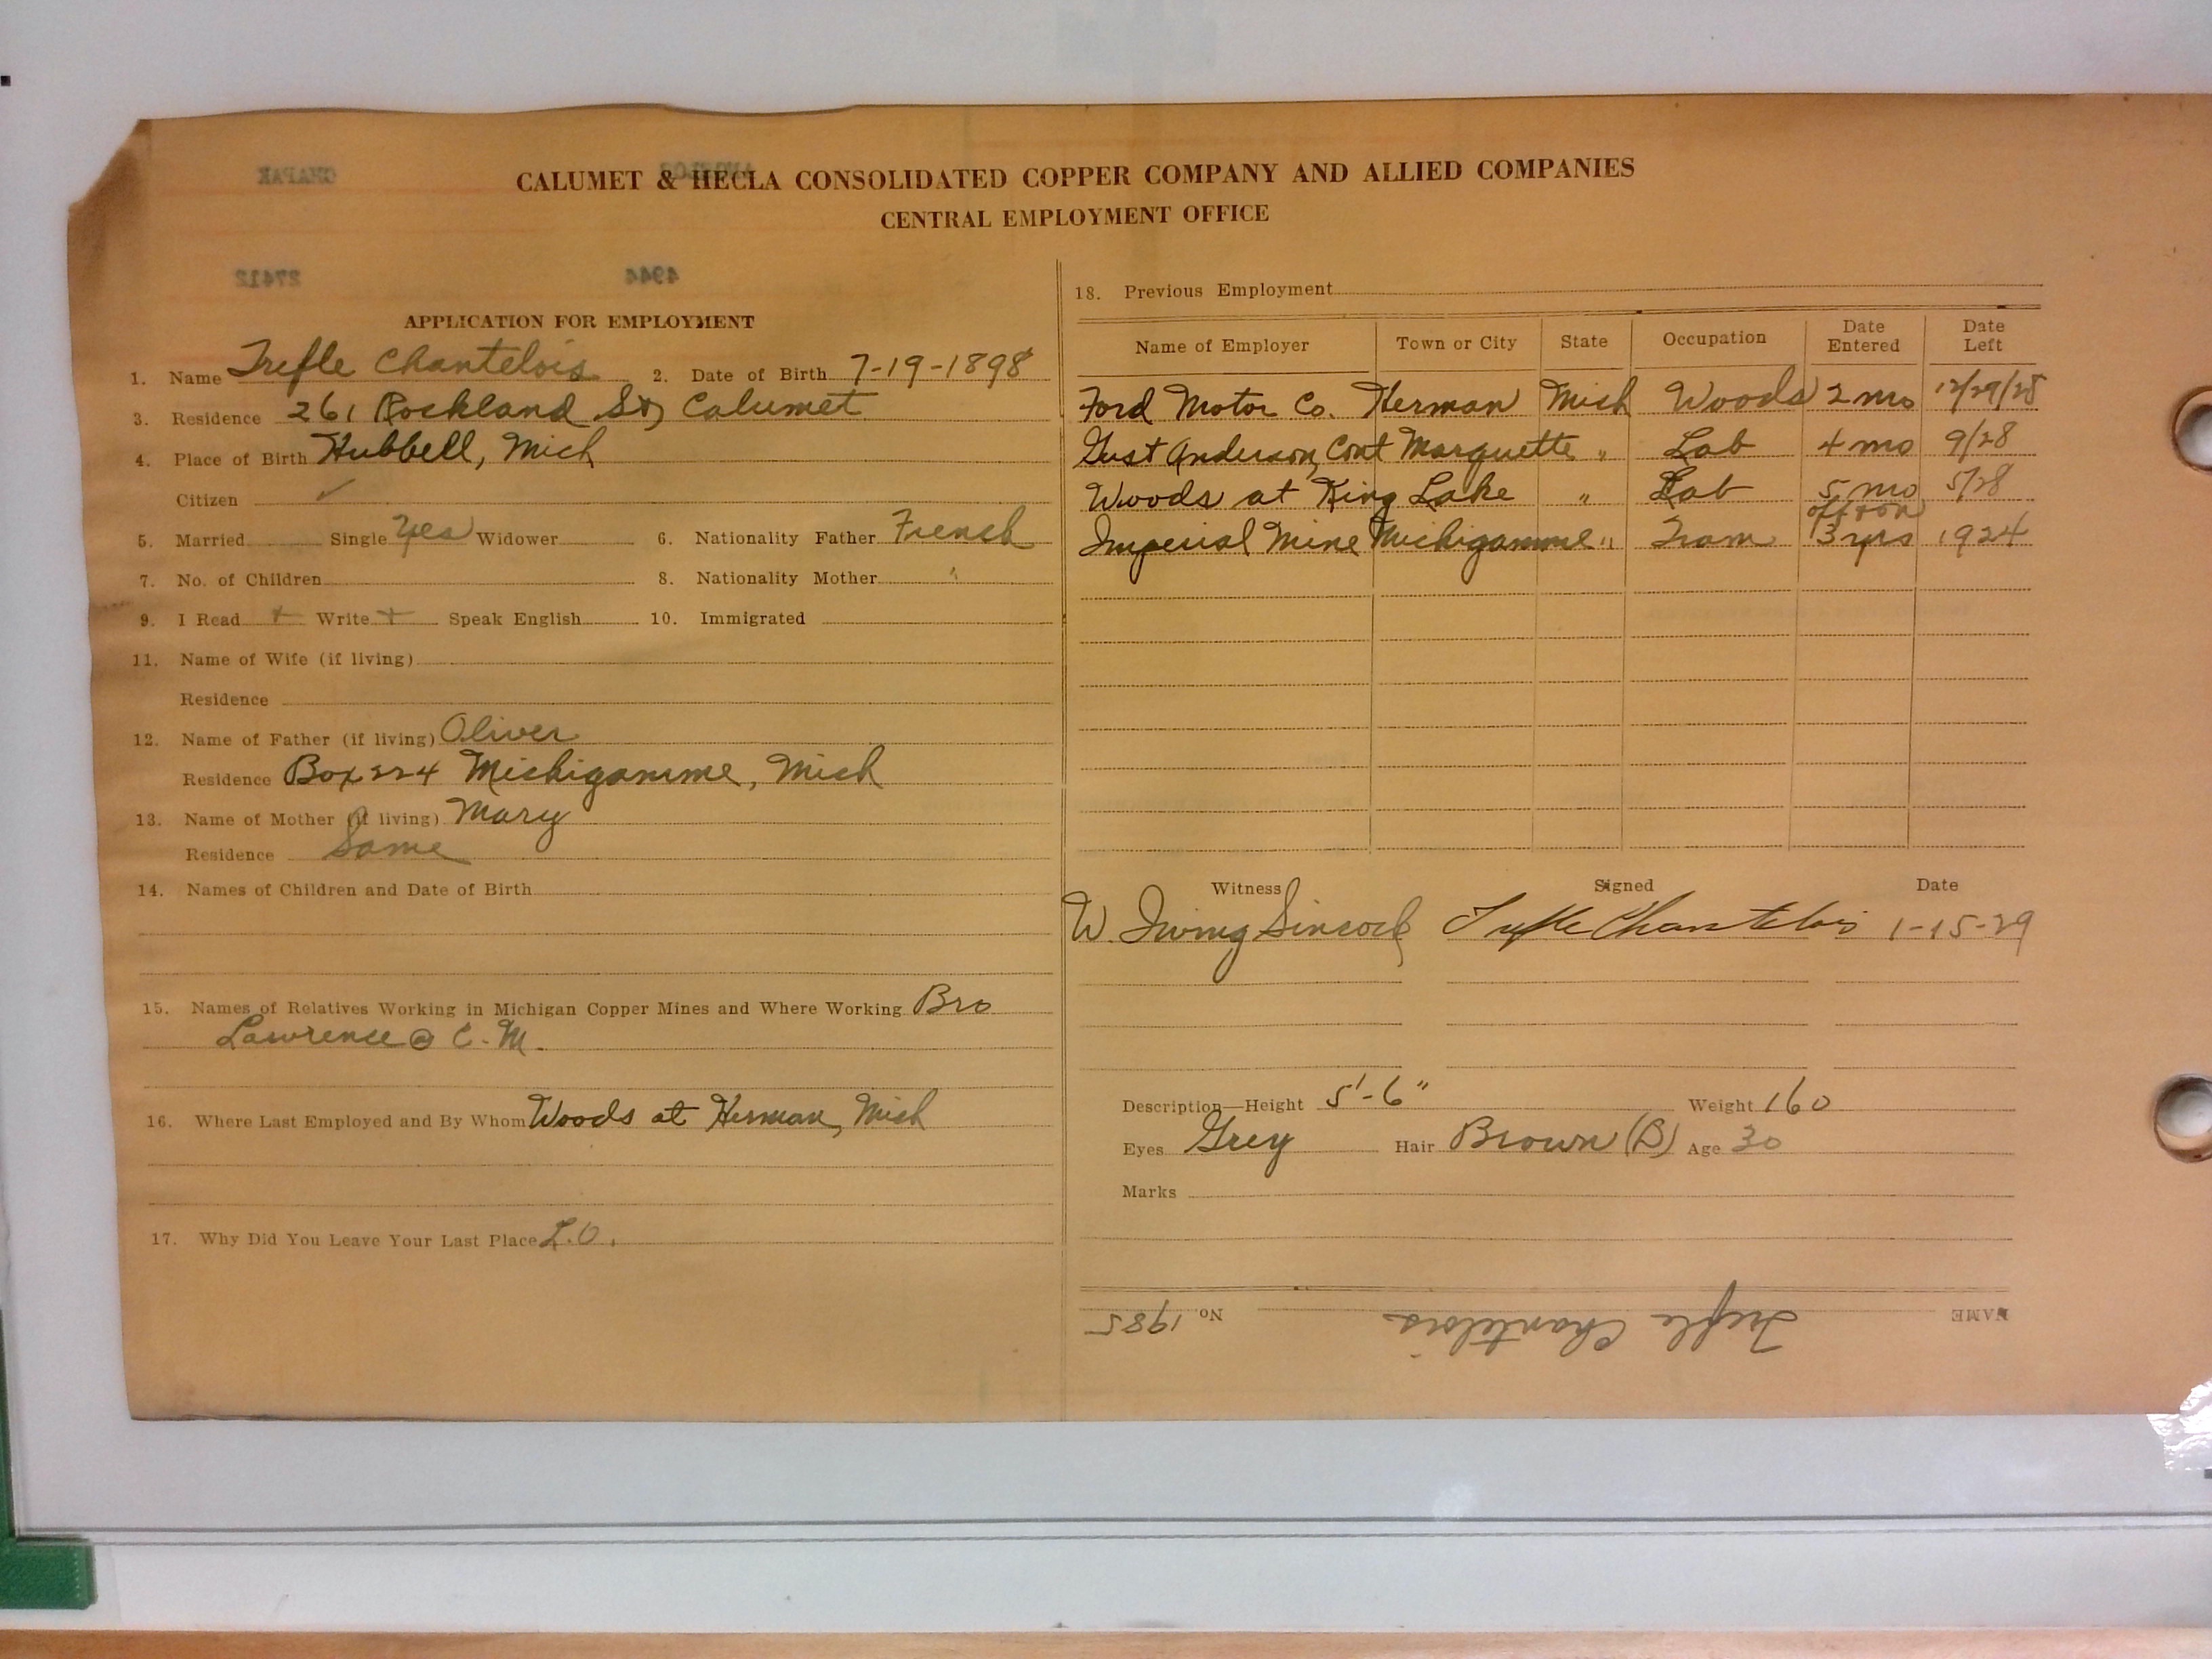 CALUMET & HECLA CONSOLIDATED COPPER COMPANY AND ALLIED COMPANIES
CENTRAL EMPLOYMENT OFFICE
27412 4944
APPLICATION FOR EMPLOYMENT
1. Name Trefle Chantelois 2. Date of Birth 7-19-1898
3. Residence 261 Rockland St, Calumet
4. Place of Birth Hubbell, Mich
Citizen ✓
5. Married Single Yes Widower 6. Nationality Father French
7. No. of Children 8. Nationality Mother "
9. I Read + Write + Speak English 10. Immigrated
11. Name of Wife (if living)
Residence
12. Name of Father (if living) Oliver
Residence Box 224 Michigamme, Mich
13. Name of Mother (if living) Mary
Residence Same
14. Names of Children and Date of Birth
15. Names of Relatives Working in Michigan Copper Mines and Where Working Bro
Lawrence @ C. M.
16. Where Last Employed and By Whom Woods at Herman, Mich
17. Why Did You Leave Your Last Place L.O.
18. Previous Employment
Name of Employer Town or City State Occupation Date Entered Date Left
Ford Motor Co. Herman Mich Woods 2 mo 12/29/28
Gust Anderson, Cont Marquette " Lab 4 mo 9/28
Woods at King Lake " Lab 5 mo 5/28
off & on
Imperial Mine Michigamme " Tram 3 yrs 1924
Witness Signed Date
W. Irving Sincock Trefle Chantelois 1-15-29
Description—Height 5'-6" Weight 160
Eyes Grey Hair Brown (B) Age 30
Marks
NAME Trefle Chantelois No. 1985